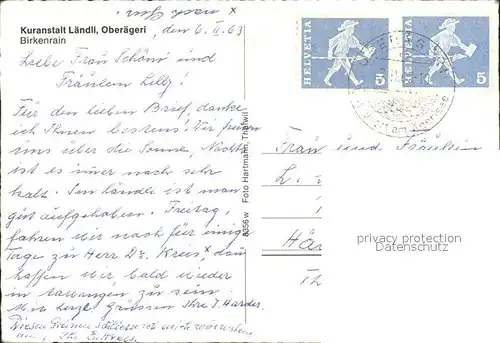 x nach Gun.
Kuranstalt Ländli, Oberägeri
Birkenrain
den 6. II. 63
Liebe Frau Schöni und
Fräulein Lilly!
Für den lieben Brief, danke
ich Ihnen bestens. Wir freuen
uns über die Sonne, Nachts
ist es immer noch sehr
kalt. Im Ländli ist man
gut aufgehoben. Freitag,
fahren wir noch für einige
Tage zu Herr Dr. x, dann
hoffen wir bald wieder
in zu sein.
Mit herzl. Grüssen Ihre J. Harder.
Diesen Grüssen schliesse ich mich
an, Ihr
8356 w Foto Hartmann, Thalwil
HELVETIA 5
HELVETIA 5
am
Frau und Fräulein
L.
privacy protection
Datenschutz